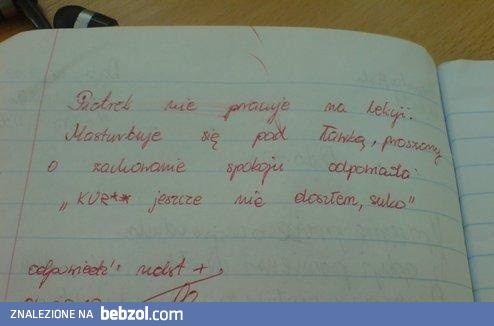 Piotrek nie pracuje na lekcji.
Masturbuje się pod ławką, proszony
o zachowanie spokoju odpowiada:
„KUR** jeszcze nie doszłem, suko"
odpowiedź: ndst +,
ZNALEZIONE NA bebzol.com